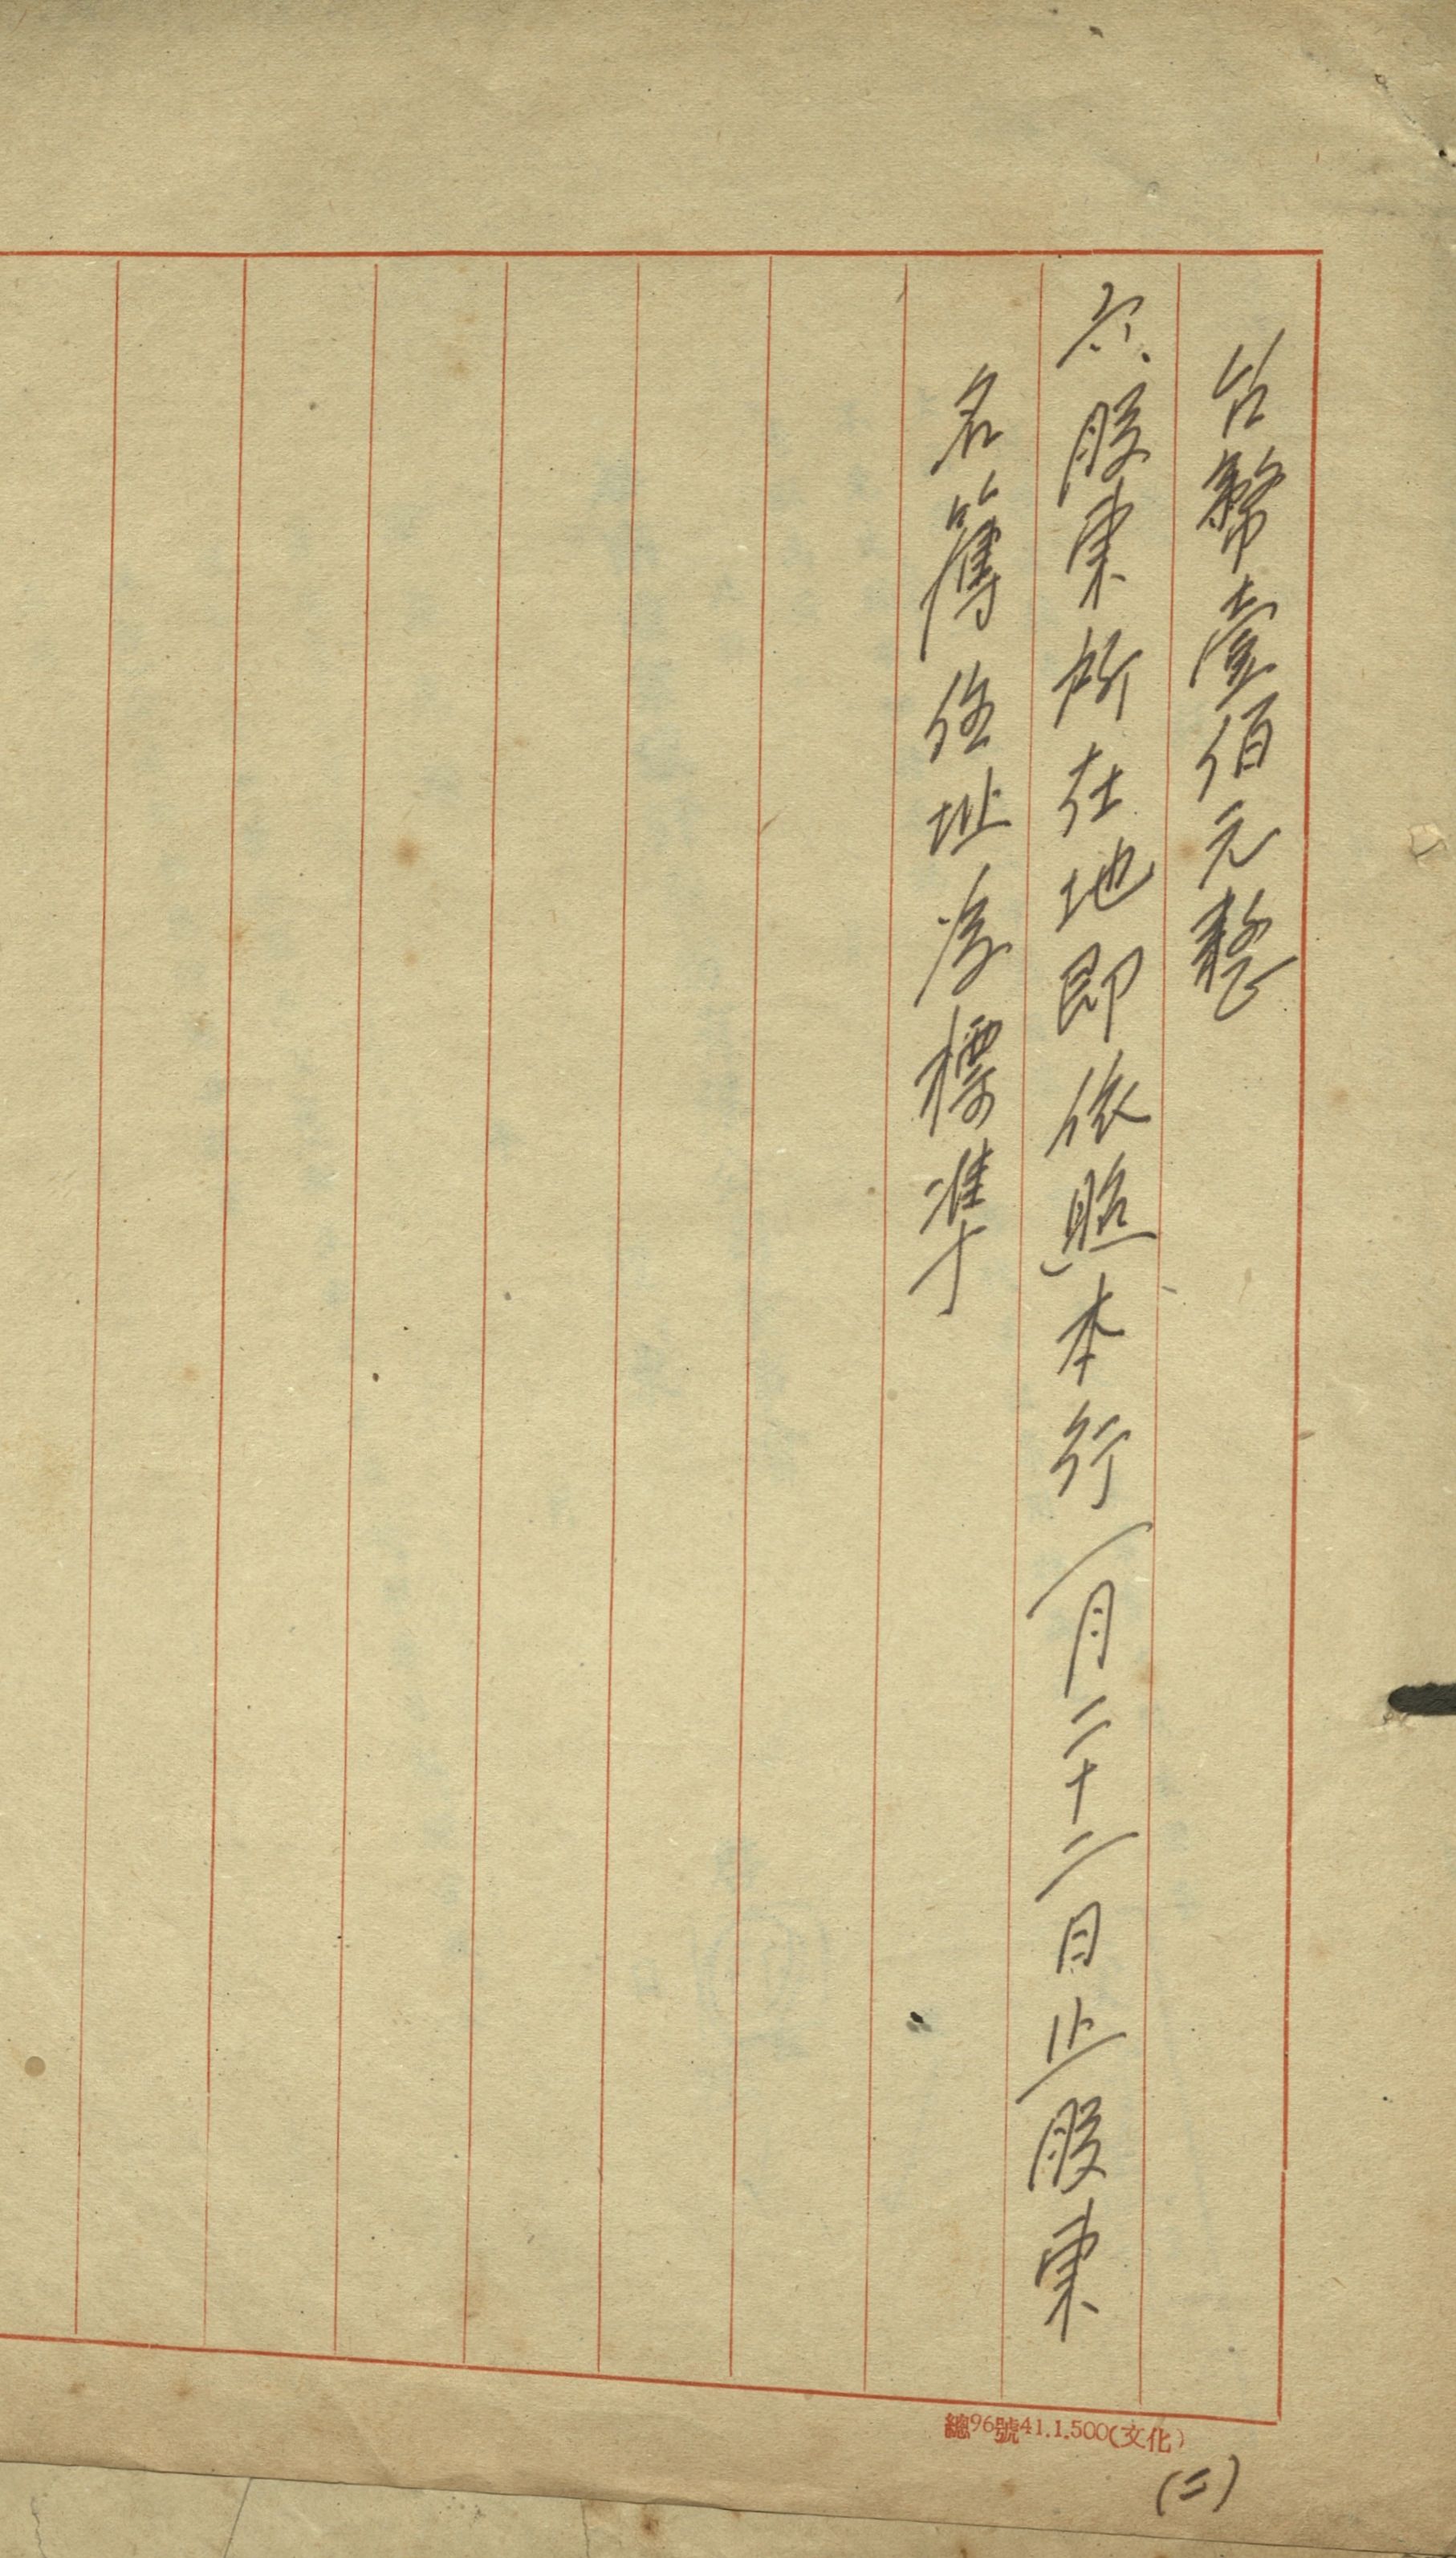 台幣壹佰元整
六、股東所在地即依照本行一月二十二日止股東
名簿住址為標準
總96號41.1.500(文化)
(二)